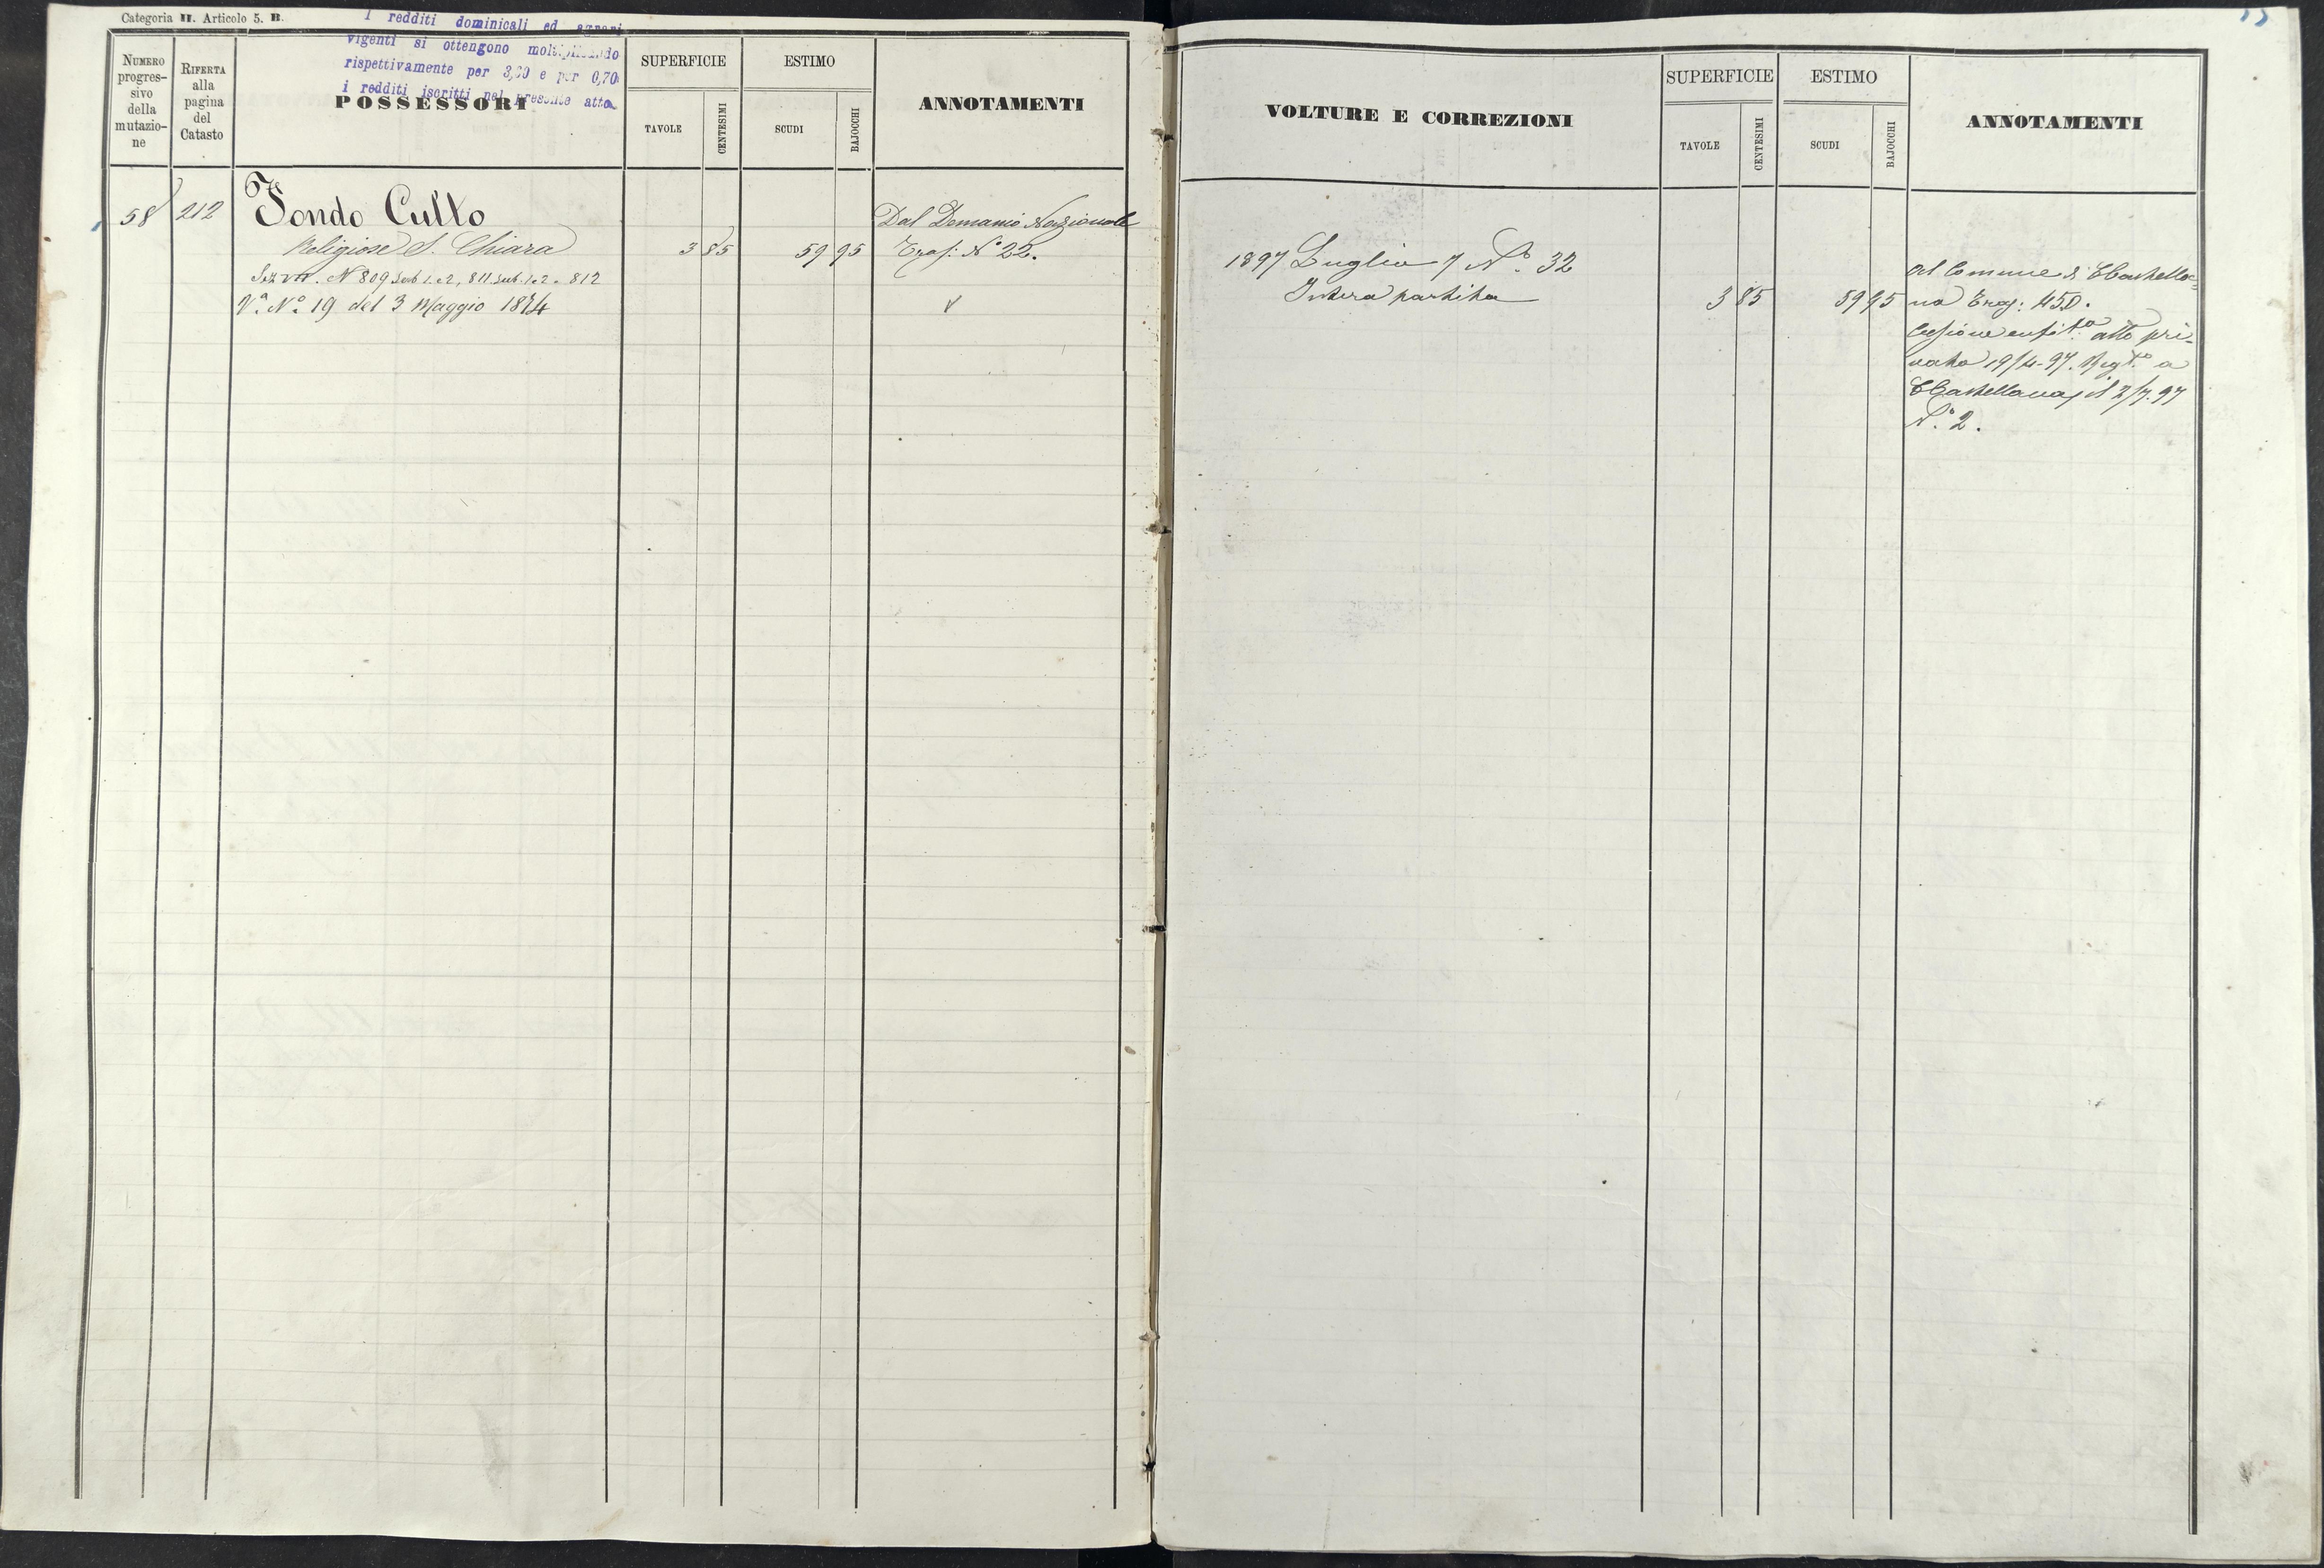 Categoria II. Articolo 5. B.
I redditi dominicali ed agrari
vigenti si ottengono moltiplicando
rispettivamente per 3,30 e per 0,70
i redditi iscritti nel presente atto
NUMERO
progres-
sivo
della
mutazio-
ne
RIFERTA
alla
pagina
del
Catasto
POSSESSORI
SUPERFICIE
TAVOLE
CENTESIMI
ESTIMO
SCUDI
BAJOCCHI
ANNOTAMENTI
58 212 Fondo Culto Dal Demanio Nazionale
Religiose S. Chiara 3 85 59 95 Traf: N° 22.
Sez VII. N 809 sub 1. e 2, 811 sub. 1. e 2 . 812
Va. No. 19 del 3 Maggio 1874
VOLTURE E CORREZIONI
SUPERFICIE
TAVOLE
CENTESIMI
ESTIMO
SCUDI
BAJOCCHI
ANNOTAMENTI
1897 Luglio 7 No. 32
Intera partita 3 85 59 95
Al Comune di CCastella=
na Traf: 450.
Cessione atto pri-
vato 19/4-97. Regto a
CCastellana il 2/7.97
No. 2.